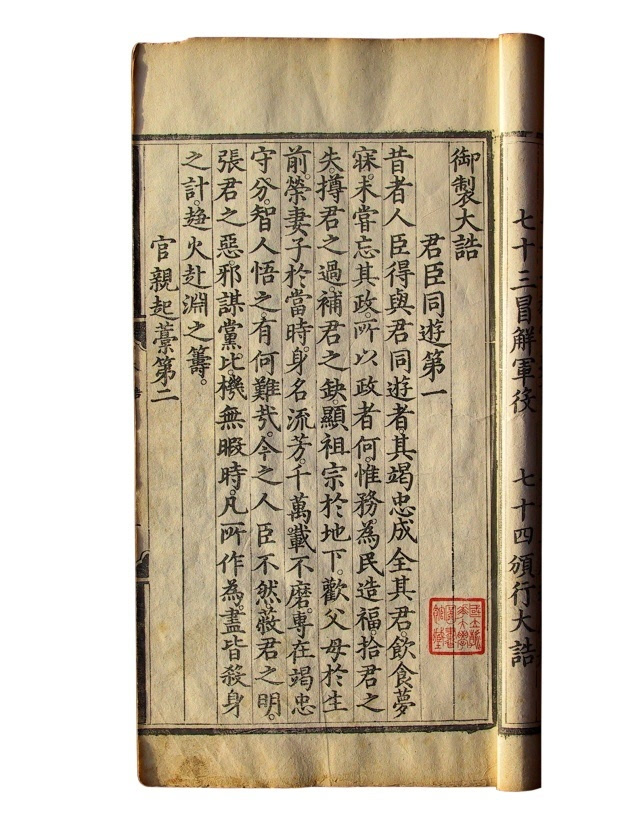 七十三冒解軍役　七十四頒行大誥
御製大誥
君臣同遊第一
昔者人臣得與君同遊者。其竭忠成全其君。飲食夢
寐。未嘗忘其政。所以政者何。惟務為民造福。拾君之
失。撙君之過。補君之缺。顯祖宗於地下。歡父母於生
前。榮妻子於當時。身名流芳。千萬載不磨。專在竭忠
守分。智人悟之。有何難哉。今之人臣不然。蔽君之明。
張君之惡。邪謀黨比。機無暇時。凡所作為。盡皆殺身
之計。趍火赴淵之籌。
官親起藁第二